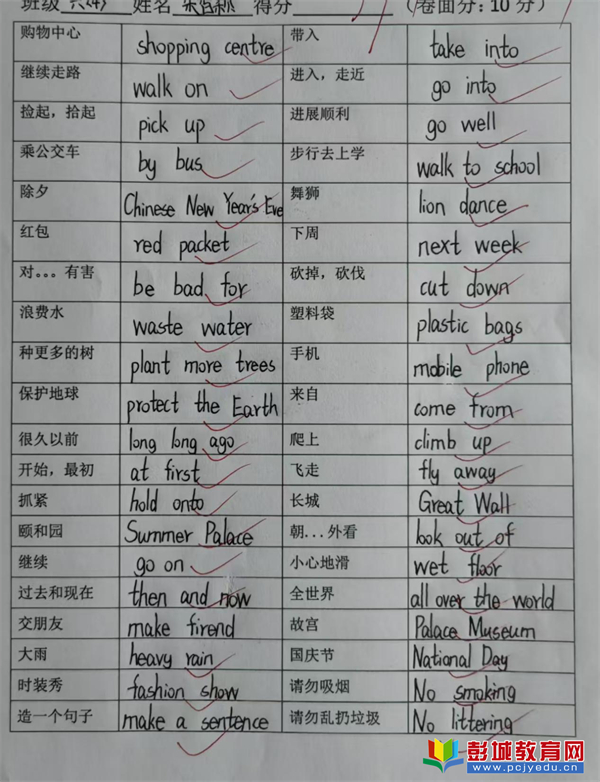 班级 六(4) 姓名 得分 (卷面分：10分)
购物中心 shopping centre 带入 take into
继续走路 walk on 进入，走近 go into
捡起，拾起 pick up 进展顺利 go well
乘公交车 by bus 步行去上学 walk to school
除夕 Chinese New Year's Eve 舞狮 lion dance
红包 red packet 下周 next week
对。。。有害 be bad for 砍掉，砍伐 cut down
浪费水 waste water 塑料袋 plastic bags
种更多的树 plant more trees 手机 mobile phone
保护地球 protect the Earth 来自 come from
很久以前 long long ago 爬上 climb up
开始，最初 at first 飞走 fly away
抓紧 hold onto 长城 Great Wall
颐和园 Summer Palace 朝...外看 look out of
继续 go on 小心地滑 wet floor
过去和现在 then and now 全世界 all over the world
交朋友 make firend 故宫 Palace Museum
大雨 heavy rain 国庆节 National Day
时装秀 fashion show 请勿吸烟 No smoking
造一个句子 make a sentence 请勿乱扔垃圾 No littering
彭城教育网
www.pcjyedu.cn